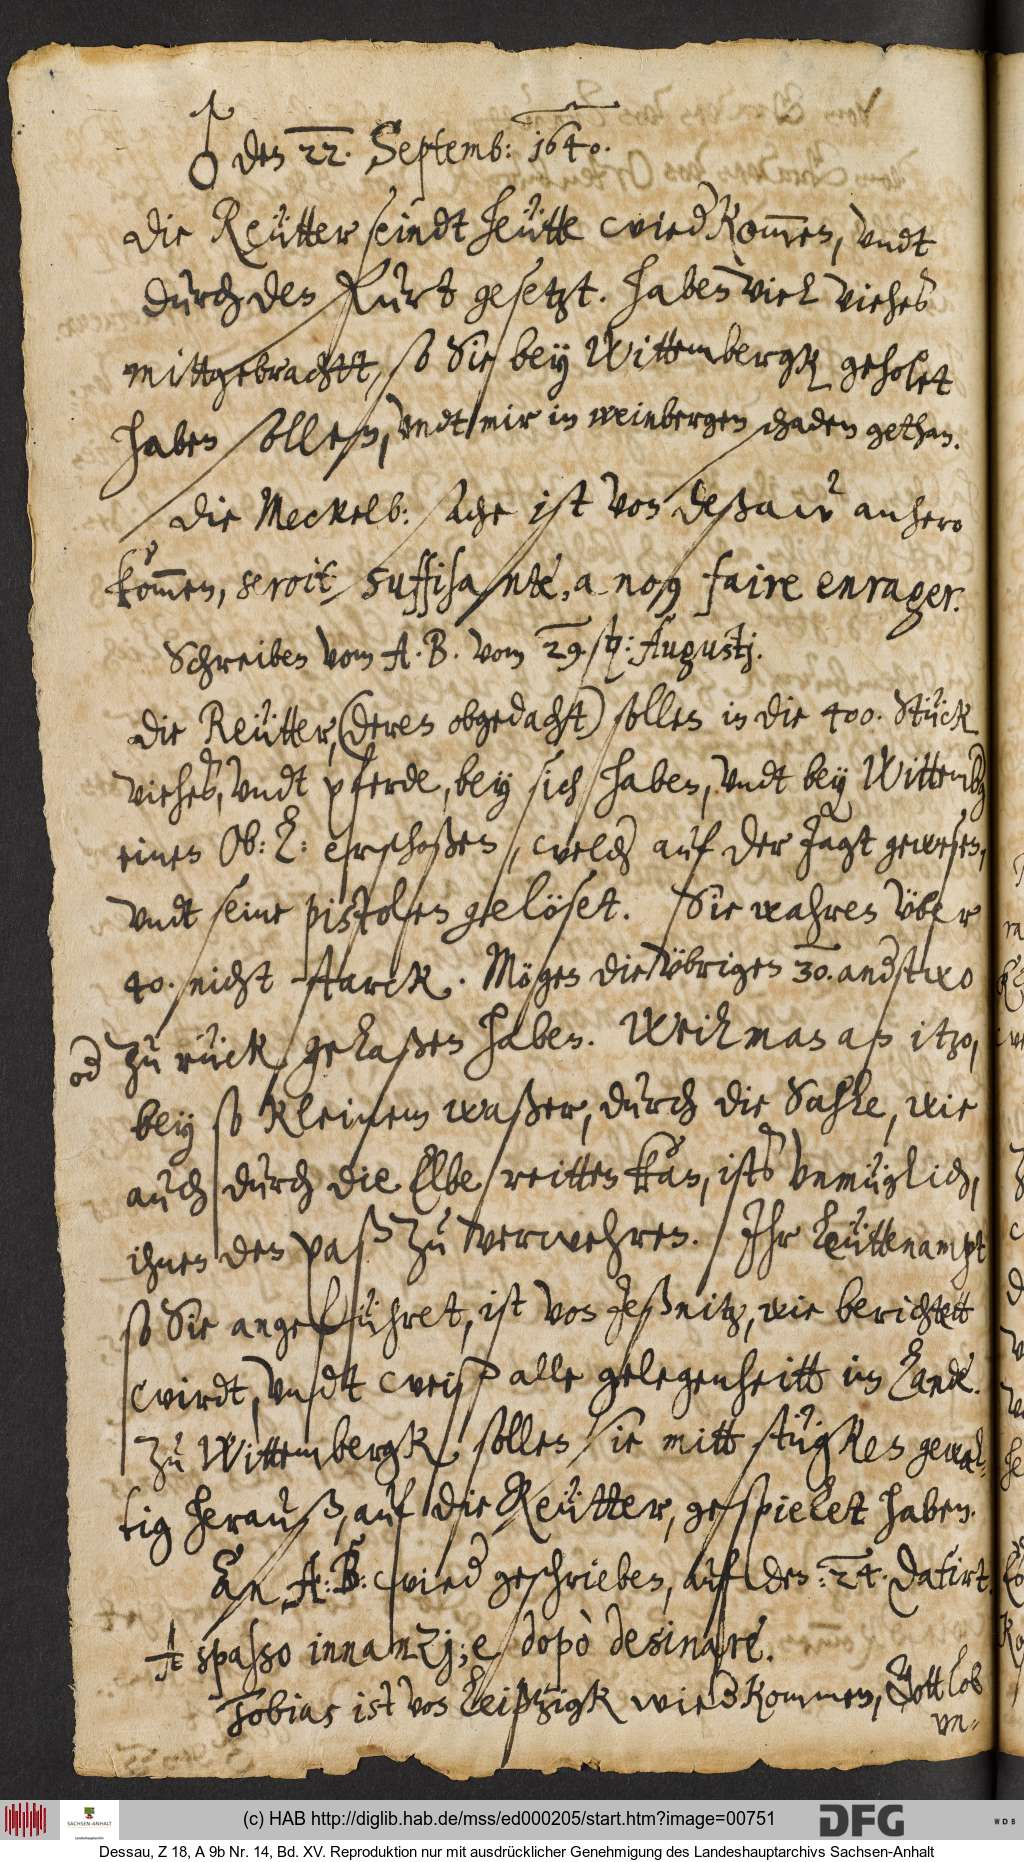 ♂ den 22. Septemb: 1640.
Die Reütter seindt heütte wied kom̄en, vndt
durch den Furt gesetzt. haben viel viehes
mittgebrachtt, so Sie bey Wittembergk geholet
haben sollen, vndt mir in weinbergen schaden gethan.
Die Meckelb: sache ist von Deßaw anhero
kom̄en, seroit suffisante, a nos faire enrager.
Schreiben vom A. B. vom 29. st: Augustj.
Die Reütter, (deren obgedacht) sollen in die 400. Stück
viehes, vndt pferde, bey sich haben, vndt bey Wittembg
einen Ob: L: erschoßen, welch auf der Jagt gewesen,
vndt seine pistolen gelöset. Sie wahren vber
40. nicht starck. Mögen die vbrigen 30. andstwo
od zu rück gelaßen haben. Weil man an itzo,
bey so kleinem waßer, durch die Sahle, wie
auch durch die Elbe reitten kan, ists vnmüglich,
ihnen den paß zu verwehren. Ihr Leüttenampt
so Sie angeführet, ist von Jeßnitz, wie berichtett
wirdt, vndt weiß alle gelegenheitt im Lande.
Zu Wittembergk sollen sie mitt stügken gewal-
tig herauß, auf die Reütter, gespielet haben.
An A: B: wied geschrieben, auf den: 24. datirt.
A spasso innanzj; e dopò desinare.
Tobias ist von Leiptzigk wied kommen, Gott lob
vn-
(c) HAB http://diglib.hab.de/mss/ed000205/start.htm?image=00751
SACHSEN-ANHALT
DFG
WDB
Dessau, Z 18, A 9b Nr. 14, Bd. XV. Reproduktion nur mit ausdrücklicher Genehmigung des Landeshauptarchivs Sachsen-Anhalt